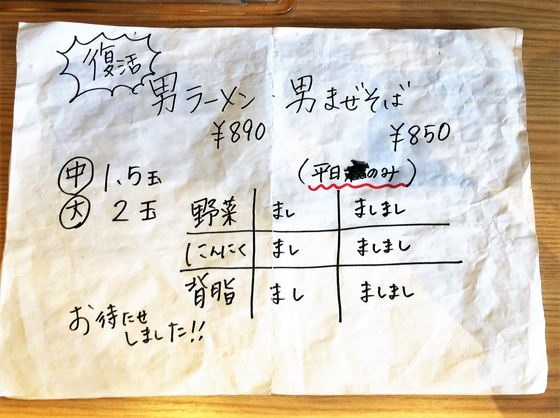 復活
男ラーメン・男まぜそば
¥890 ¥850
㊥ 1.5玉 (平日のみ)
㊛ 2玉
野菜 まし ましまし
にんにく まし ましまし
背脂 まし ましまし
お待たせ
しました!!